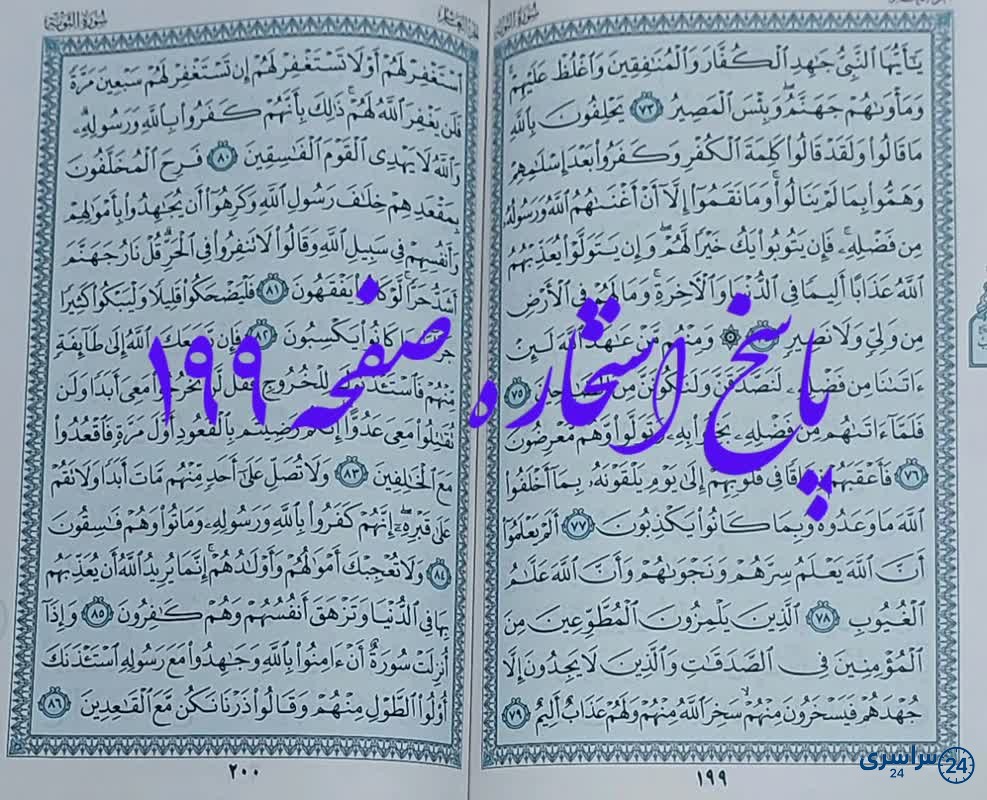 سُورَةُ التَّوْبَةِ
يَٰٓأَيُّهَا ٱلنَّبِيُّ جَٰهِدِ ٱلْكُفَّارَ وَٱلْمُنَٰفِقِينَ وَٱغْلُظْ عَلَيْهِمْ
وَمَأْوَىٰهُمْ جَهَنَّمُ وَبِئْسَ ٱلْمَصِيرُ ٧٣ يَحْلِفُونَ بِٱللَّهِ
مَا قَالُوا۟ وَلَقَدْ قَالُوا۟ كَلِمَةَ ٱلْكُفْرِ وَكَفَرُوا۟ بَعْدَ إِسْلَٰمِهِمْ
وَهَمُّوا۟ بِمَا لَمْ يَنَالُوا۟ وَمَا نَقَمُوٓا۟ إِلَّآ أَنْ أَغْنَىٰهُمُ ٱللَّهُ وَرَسُولُهُۥ
مِن فَضْلِهِۦ فَإِن يَتُوبُوا۟ يَكُ خَيْرًا لَّهُمْ وَإِن يَتَوَلَّوْا۟ يُعَذِّبْهُمُ
ٱللَّهُ عَذَابًا أَلِيمًا فِي ٱلدُّنْيَا وَٱلْءَاخِرَةِ وَمَا لَهُمْ فِي ٱلْأَرْضِ
مِن وَلِيٍّ وَلَا نَصِيرٍ وَمِنْهُم مَّنْ عَٰهَدَ ٱللَّهَ لَئِنْ
ءَاتَىٰنَا مِن فَضْلِهِۦ لَنَصَّدَّقَنَّ وَلَنَكُونَنَّ مِنَ ٱلصَّٰلِحِينَ ٧٥
فَلَمَّآ ءَاتَىٰهُم مِّن فَضْلِهِۦ بَخِلُوا۟ بِهِۦ وَتَوَلَّوا۟ وَّهُم مُّعْرِضُونَ
٧٦ فَأَعْقَبَهُمْ نِفَاقًا فِي قُلُوبِهِمْ إِلَىٰ يَوْمِ يَلْقَوْنَهُۥ بِمَآ أَخْلَفُوا۟
ٱللَّهَ مَا وَعَدُوهُ وَبِمَا كَانُوا۟ يَكْذِبُونَ ٧٧ أَلَمْ يَعْلَمُوٓا۟
أَنَّ ٱللَّهَ يَعْلَمُ سِرَّهُمْ وَنَجْوَىٰهُمْ وَأَنَّ ٱللَّهَ عَلَّٰمُ
ٱلْغُيُوبِ ٧٨ ٱلَّذِينَ يَلْمِزُونَ ٱلْمُطَّوِّعِينَ مِنَ
ٱلْمُؤْمِنِينَ فِي ٱلصَّدَقَٰتِ وَٱلَّذِينَ لَا يَجِدُونَ إِلَّا
جُهْدَهُمْ فَيَسْخَرُونَ مِنْهُمْ سَخِرَ ٱللَّهُ مِنْهُمْ وَلَهُمْ عَذَابٌ أَلِيمٌ ٧٩
١٩٩
سُورَةُ التَّوْبَةِ
ٱسْتَغْفِرْ لَهُمْ أَوْ لَا تَسْتَغْفِرْ لَهُمْ إِن تَسْتَغْفِرْ لَهُمْ سَبْعِينَ مَرَّةً
فَلَن يَغْفِرَ ٱللَّهُ لَهُمْ ذَٰلِكَ بِأَنَّهُمْ كَفَرُوا۟ بِٱللَّهِ وَرَسُولِهِۦ
وَٱللَّهُ لَا يَهْدِي ٱلْقَوْمَ ٱلْفَٰسِقِينَ ٨٠ فَرِحَ ٱلْمُخَلَّفُونَ
بِمَقْعَدِهِمْ خِلَٰفَ رَسُولِ ٱللَّهِ وَكَرِهُوٓا۟ أَن يُجَٰهِدُوا۟ بِأَمْوَٰلِهِمْ
وَأَنفُسِهِمْ فِي سَبِيلِ ٱللَّهِ وَقَالُوا۟ لَا تَنفِرُوا۟ فِي ٱلْحَرِّ قُلْ نَارُ جَهَنَّمَ
أَشَدُّ حَرًّا لَّوْ كَانُوا۟ يَفْقَهُونَ ٨١ فَلْيَضْحَكُوا۟ قَلِيلًا وَلْيَبْكُوا۟ كَثِيرًا
جَزَآءًۢ بِمَا كَانُوا۟ يَكْسِبُونَ ٨٢ فَإِن رَّجَعَكَ ٱللَّهُ إِلَىٰ طَآئِفَةٍ
مِّنْهُمْ فَٱسْتَـْٔذَنُوكَ لِلْخُرُوجِ فَقُل لَّن تَخْرُجُوا۟ مَعِيَ أَبَدًا وَلَن
تُقَٰتِلُوا۟ مَعِيَ عَدُوًّا إِنَّكُمْ رَضِيتُم بِٱلْقُعُودِ أَوَّلَ مَرَّةٍ فَٱقْعُدُوا۟
مَعَ ٱلْخَٰلِفِينَ ٨٣ وَلَا تُصَلِّ عَلَىٰٓ أَحَدٍ مِّنْهُم مَّاتَ أَبَدًا وَلَا تَقُمْ
عَلَىٰ قَبْرِهِۦٓ إِنَّهُمْ كَفَرُوا۟ بِٱللَّهِ وَرَسُولِهِۦ وَمَاتُوا۟ وَهُمْ فَٰسِقُونَ
٨٤ وَلَا تُعْجِبْكَ أَمْوَٰلُهُمْ وَأَوْلَٰدُهُمْ إِنَّمَا يُرِيدُ ٱللَّهُ أَن يُعَذِّبَهُم
بِهَا فِي ٱلدُّنْيَا وَتَزْهَقَ أَنفُسُهُمْ وَهُمْ كَٰفِرُونَ ٨٥ وَإِذَآ
أُنزِلَتْ سُورَةٌ أَنْ ءَامِنُوا۟ بِٱللَّهِ وَجَٰهِدُوا۟ مَعَ رَسُولِهِ ٱسْتَـْٔذَنَكَ
أُو۟لُوا۟ ٱلطَّوْلِ مِنْهُمْ وَقَالُوا۟ ذَرْنَا نَكُن مَّعَ ٱلْقَٰعِدِينَ ٨٦
٢٠٠
پاسخ استخاره صفحه ۱۹۹
سراسری 24
24